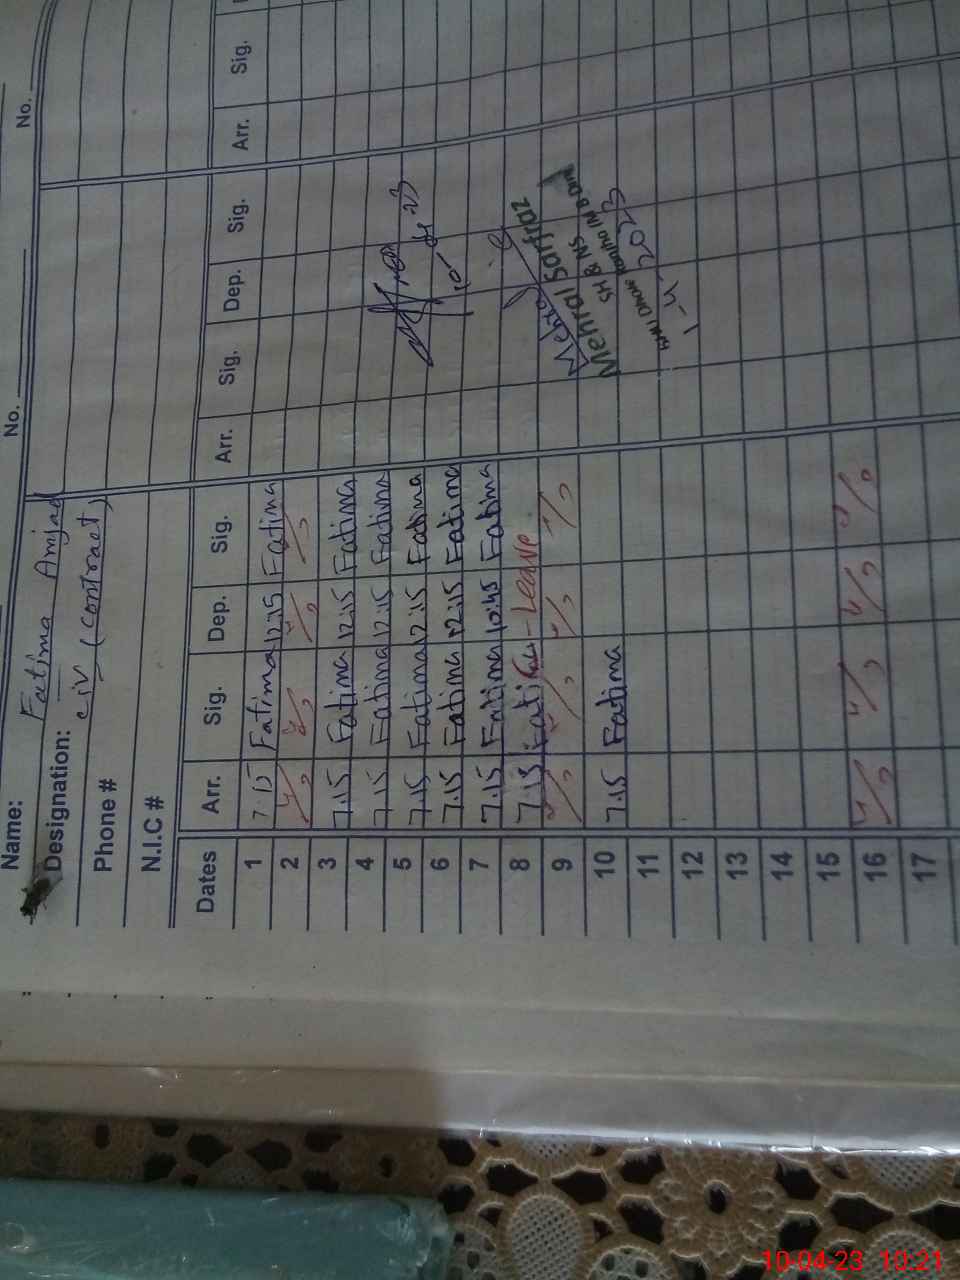 No.
No.
Name: Fatima Amjad
Designation: civ (contract)
Phone #
N.I.C #
Dates Arr. Sig. Dep. Sig. Arr. Sig. Dep. Sig. Arr. Sig.
1 7.15 Fatima 12:15 Fatima
2
3 7.15 Fatima 12:15 Fatima
4 7.15 Fatima 12:15 Fatima
5 7.15 Fatima 12:15 Fatima
6 7.15 Fatima 12:15 Fatima
7 7.15 Fatima 10:45 Fatima
8 7.15 Fatima - Leave
9
10 7.15 Fatima
11
12
13
14
15
16
17
Mehral Sarfraz
SH & NS
1-4-2023
10-04-23 10:21